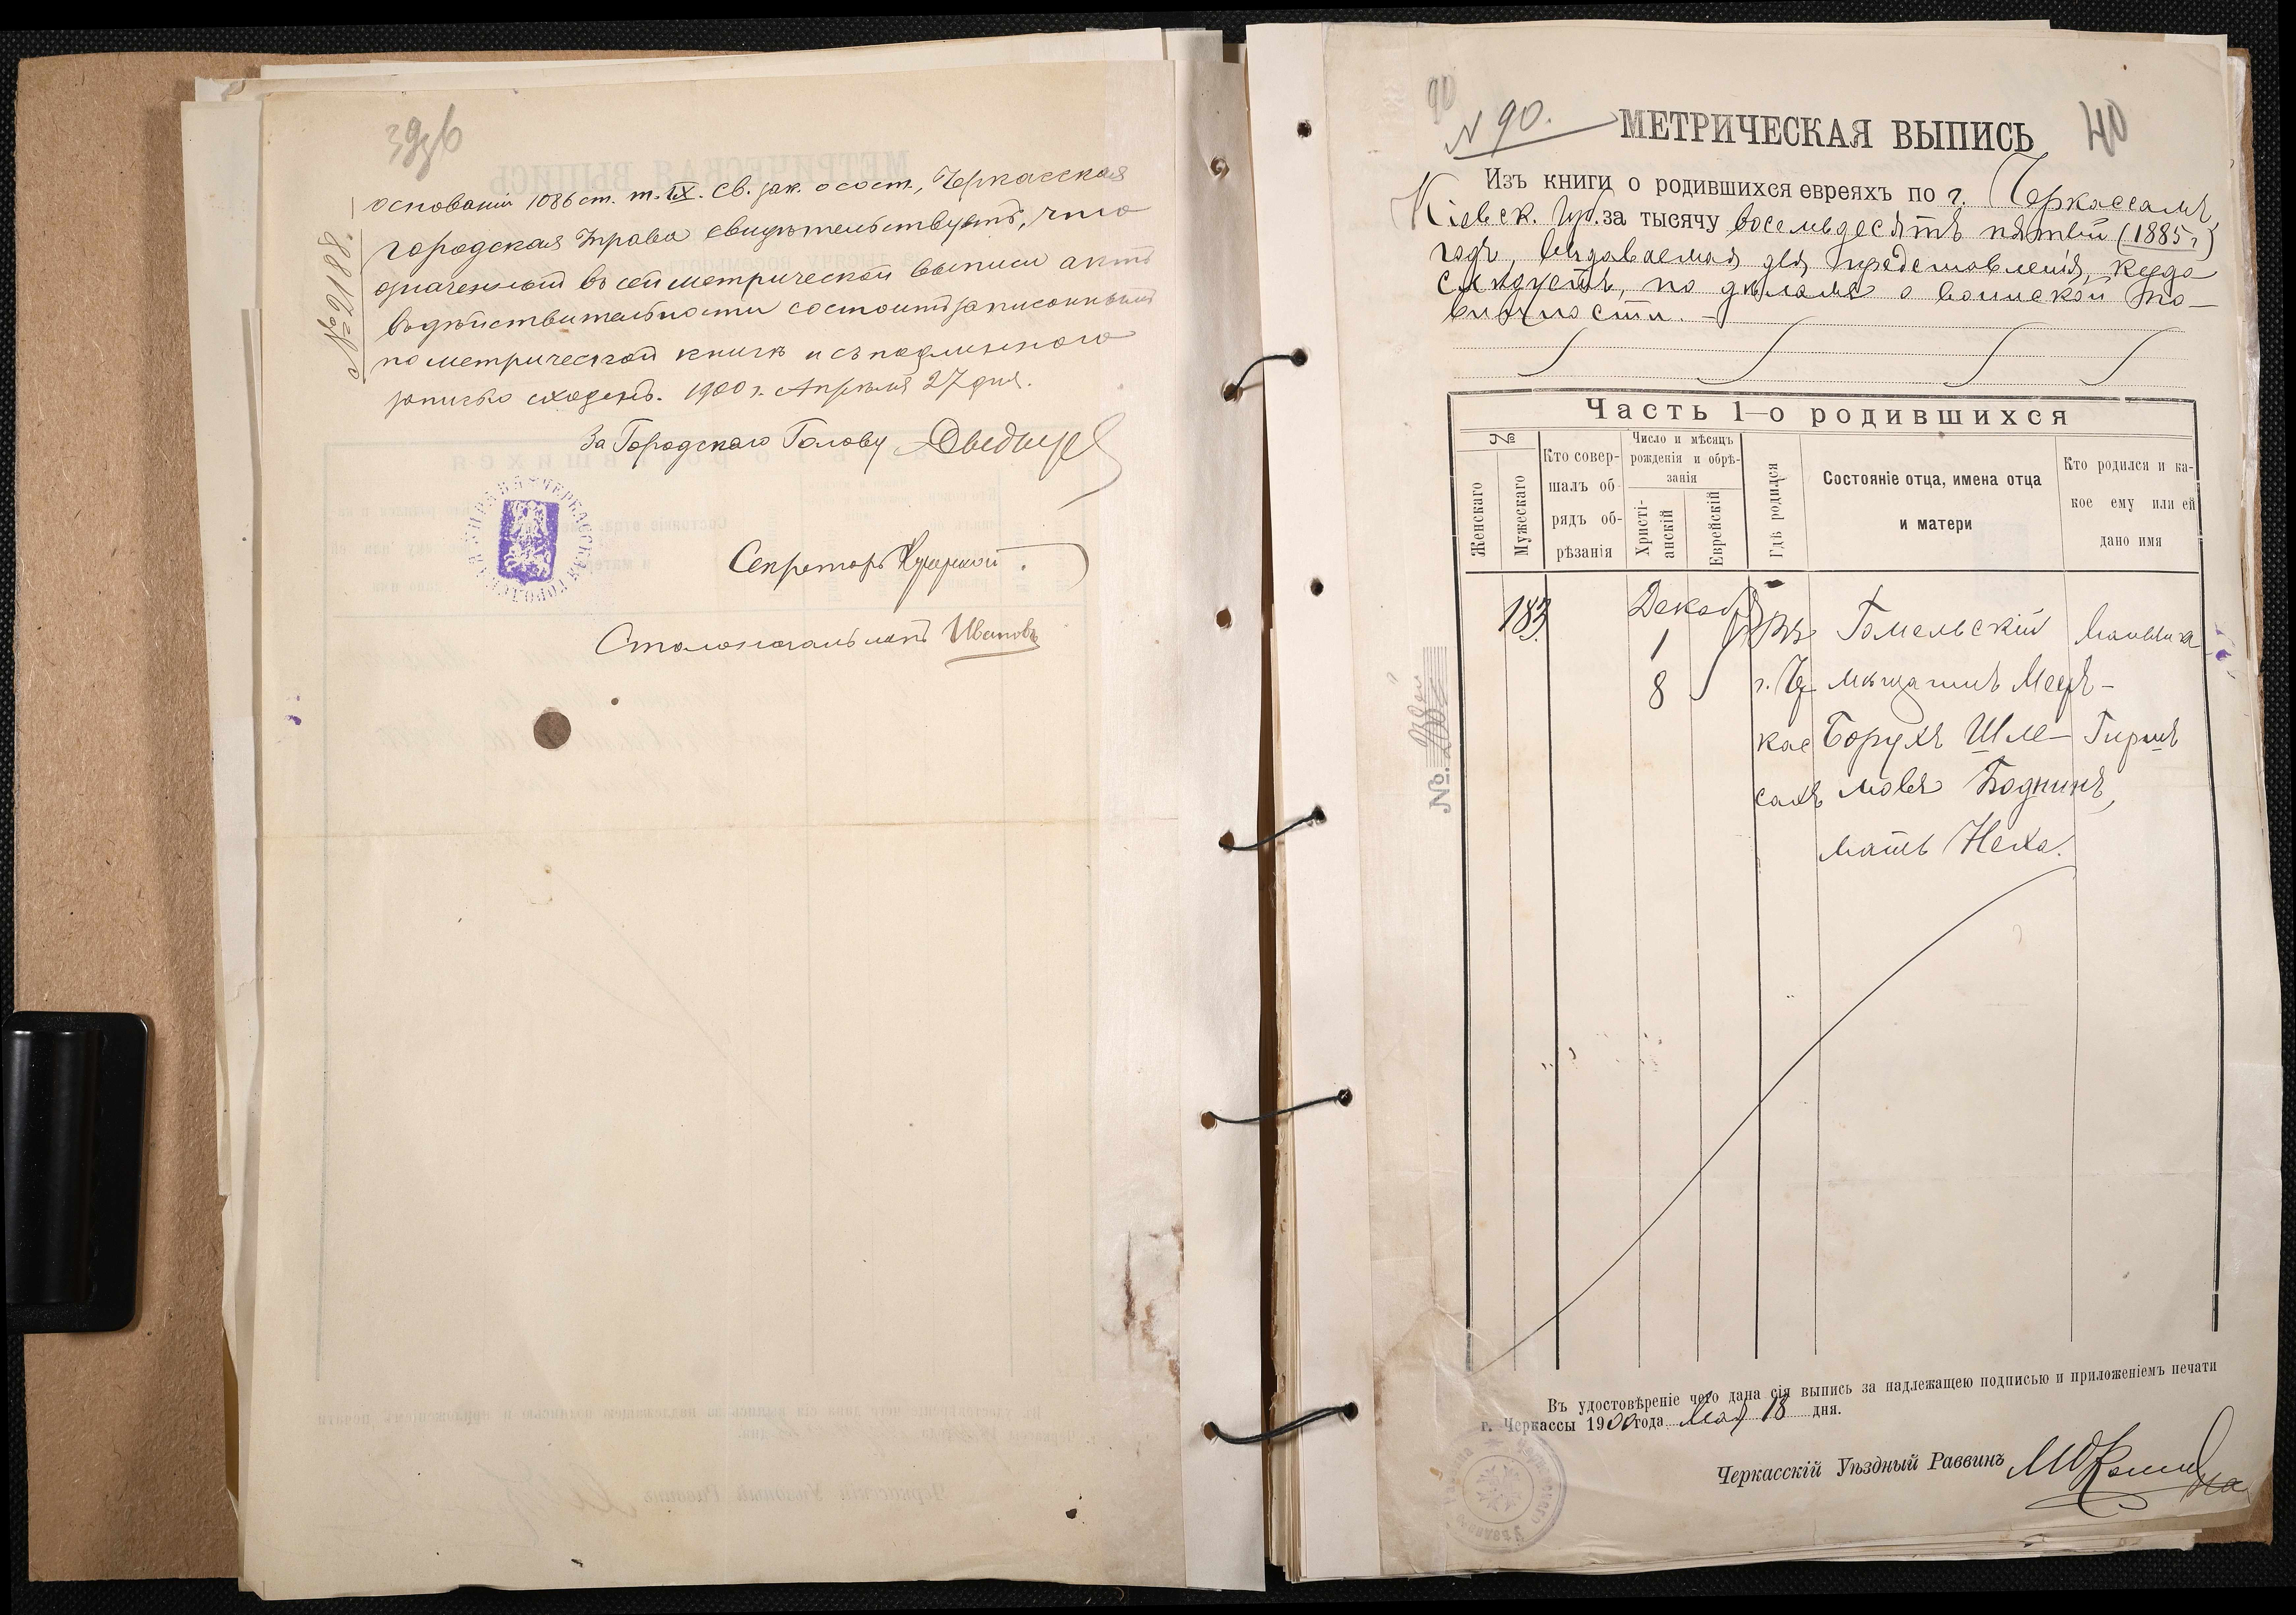 39об
№ 2188.
основании 1086 ст. т. IX. Св. зак. о сост., Черкасская
городская Управа свидѣтельствуетъ, что
означенный въ сей метрической выписи актъ
въ дѣйствительности состоитъ записаннымъ
по метрической книгѣ и съ подлинною
записью сходенъ. 1900 г. Апрѣля 27 дня.
За Городскаго Голову
Секретарь
Столоначальникъ Ивановъ
90
№ 90.
МЕТРИЧЕСКАЯ ВЫПИСЬ
40
Изъ книги о родившихся евреяхъ по г. Черкассамъ,
Кіевск. губ. за тысячу восемьдесятъ пятый (1885 г)
годъ, выдаваемая для представленія, куда
слѣдуетъ, по дѣламъ о воинской по-
винности. –
Часть 1-о родившихся
№
Женскаго
Мужескаго
Кто совер-
шалъ об-
рядъ об-
рѣзанія
Число и мѣсяцъ
рожденія и обрѣ-
занія
Христі-
анскій
Еврейскій
Гдѣ родился
Состояніе отца, имена отца
и матери
Кто родился и ка-
кое ему или ей
дано имя
183.
Декабр
1
8
Въ
г. Чер
кас
сахъ
Гомельскій
мѣщанинъ Меер-
Борухъ Шле-
мовъ Боднинъ,
мать Неха.
Мальчика
Гиршъ
Въ удостовѣреніе чего дана сія выпись за надлежащею подписью и приложеніемъ печати
г. Черкассы 1900 года Мая 18 дня.
Черкасскій Уѣздный Раввинъ